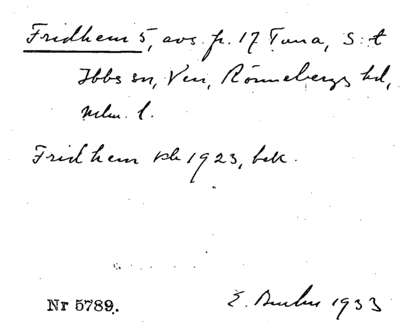 Fridhem 5, avs. fr. 17 Tuna, S:t
Ibbs sn, Ven, Rönnebergs hd,
Mlm. l.
Fridhem 1923, bek.
Nr 5789.
E. 1933